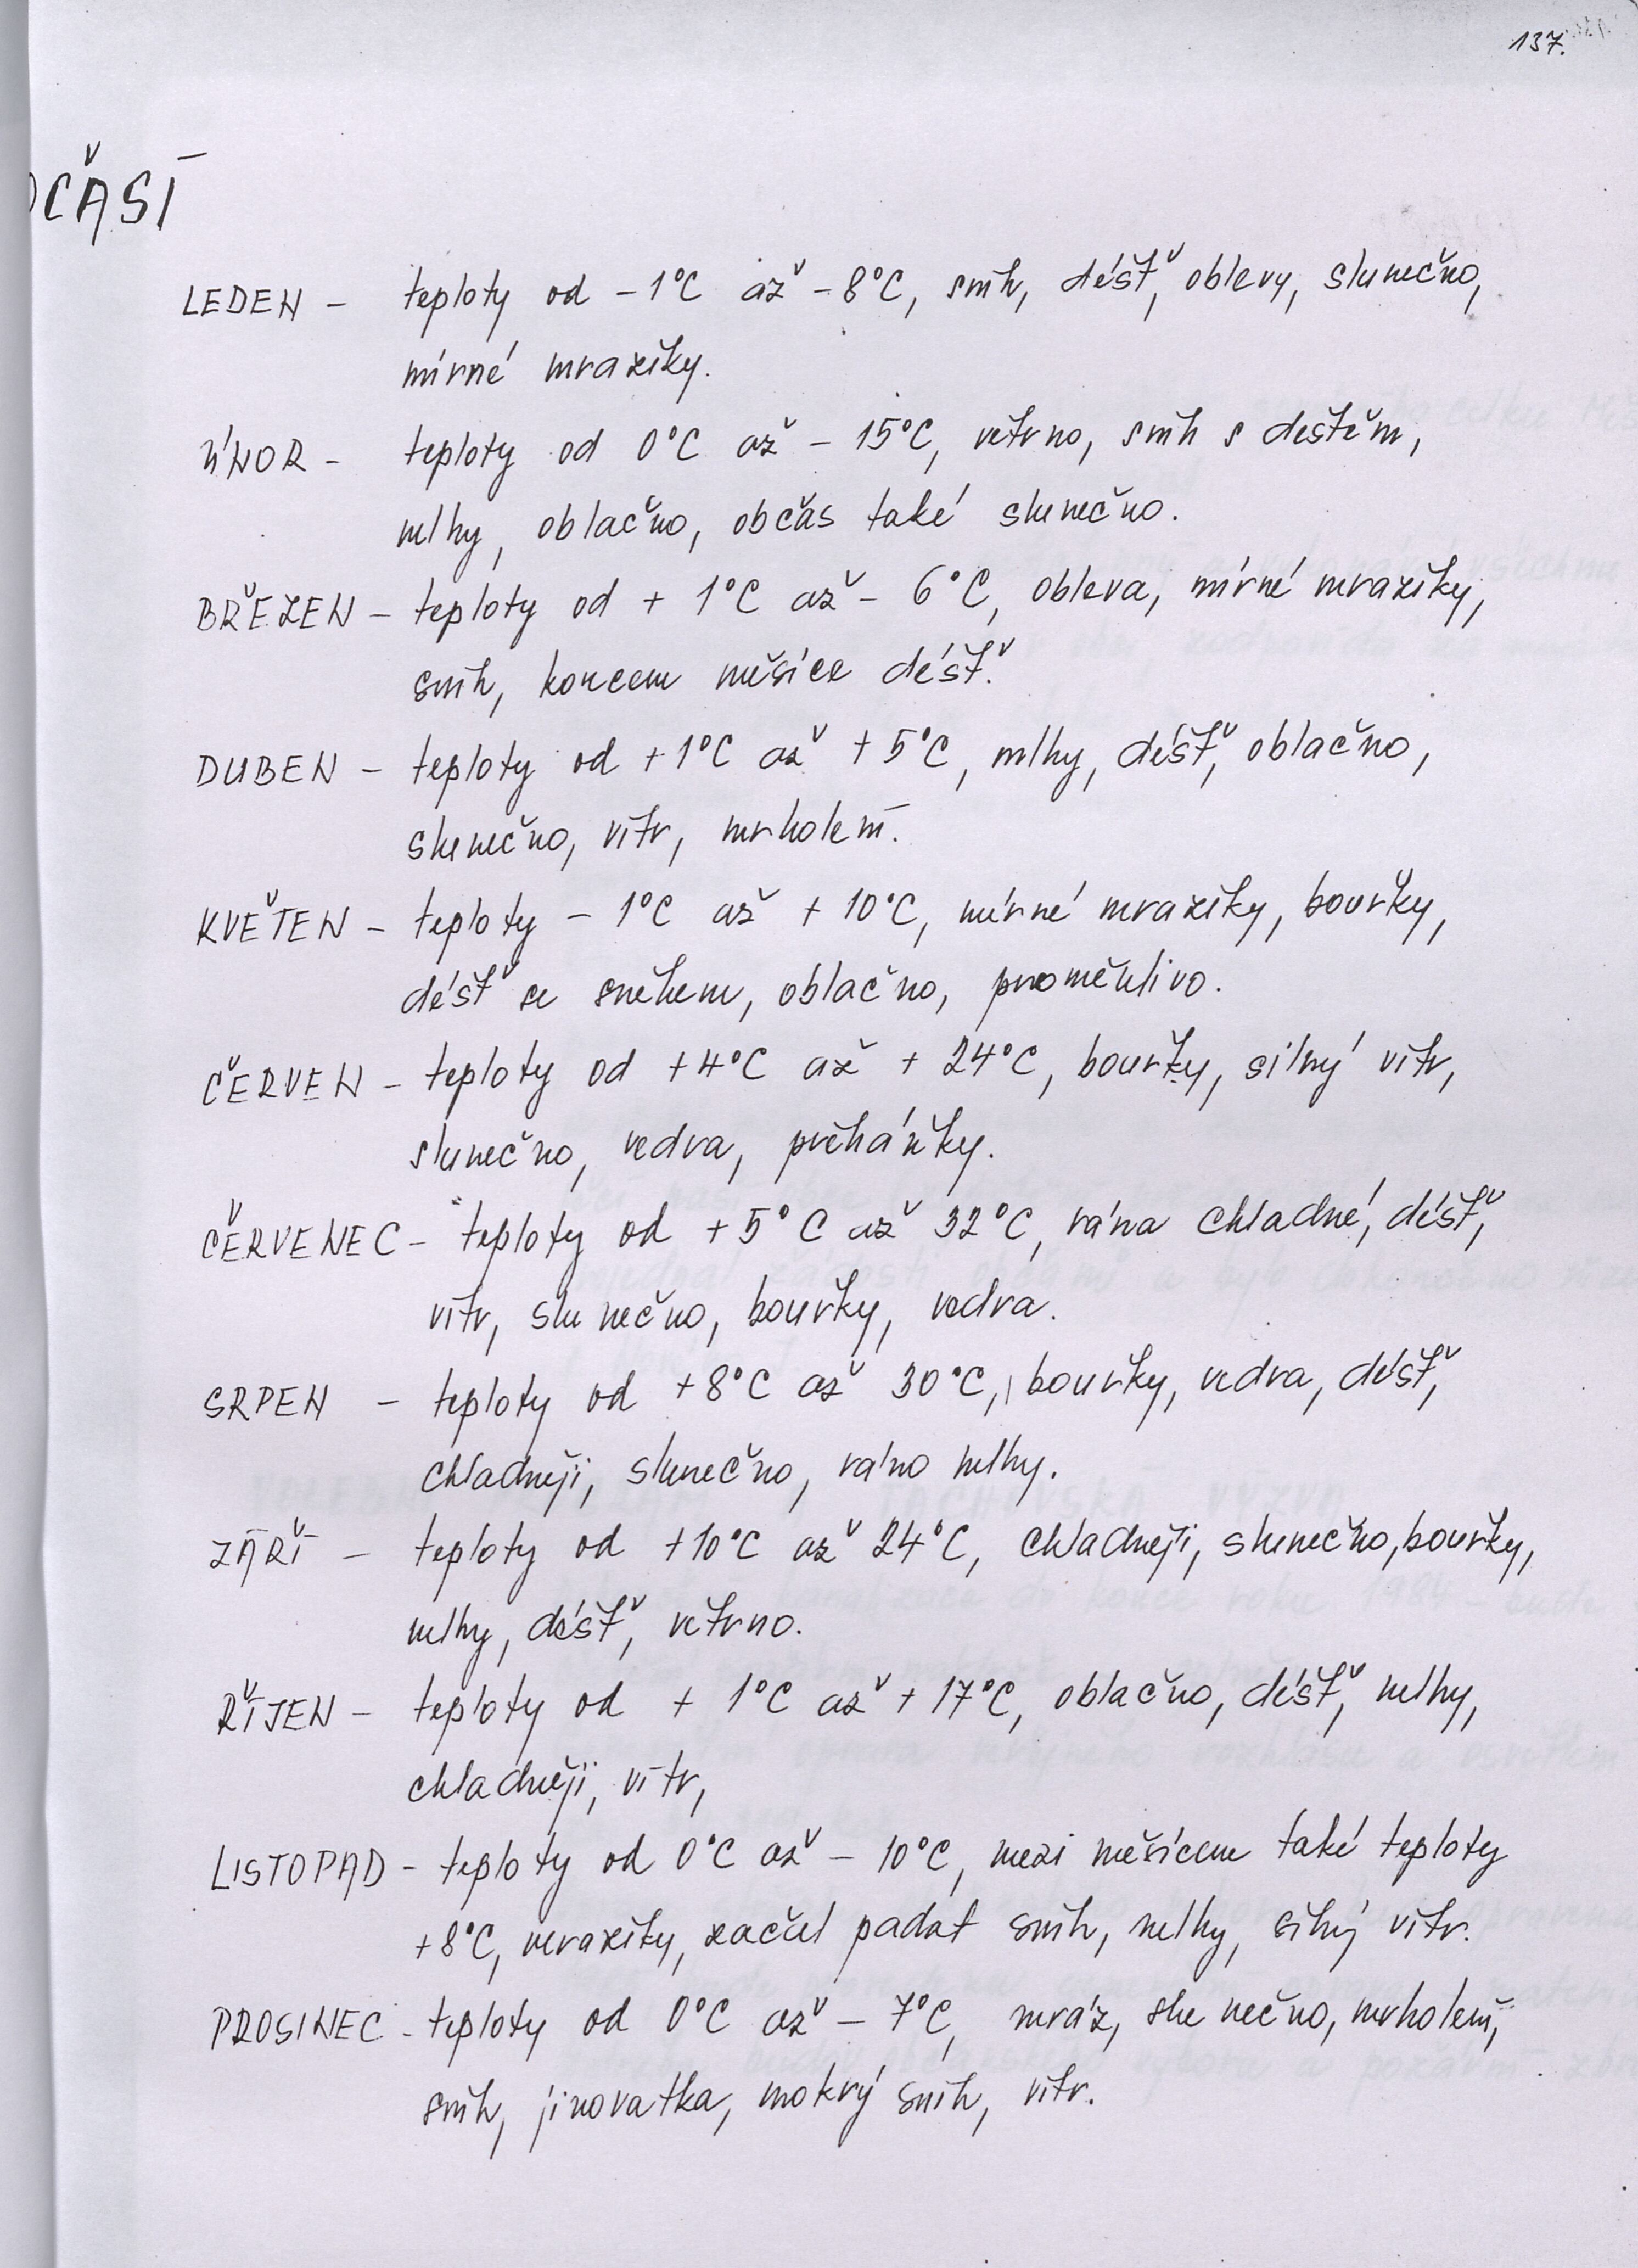 137.
OČASÍ
LEDEN - teploty od -1°C až -8°C, sníh, déšť, oblevy, slunečno,
mírné mrazíky.
ÚNOR - teploty od 0°C až - 15°C, větrno, sníh s deštěm,
mlhy, oblačno, občas také slunečno.
BŘEZEN - teploty od + 1°C až - 6°C, obleva, mírné mrazíky,
sníh, koncem měsíce déšť.
DUBEN - teploty od +1°C až +5°C, mlhy, déšť, oblačno,
slunečno, vítr, mrholení.
KVĚTEN - teploty - 1°C až + 10°C, mírné mrazíky, bouřky,
déšť se sněhem, oblačno, proměnlivo.
ČERVEN - teploty od +4°C až + 24°C, bouřky, silný vítr,
slunečno, vedra, přeháňky.
ČERVENEC - teploty od +5°C až 32°C, rána chladné, déšť,
vítr, slunečno, bouřky, vedra.
SRPEN - teploty od +8°C až 30°C, bouřky, vedra, déšť,
chladněji, slunečno, ráno mlhy.
ZÁŘÍ - teploty od +10°C až 24°C, chladněji, slunečno, bouřky,
mlhy, déšť, větrno.
ŘÍJEN - teploty od + 1°C až + 17°C, oblačno, déšť, mlhy,
chladněji, vítr,
LISTOPAD - teploty od 0°C až - 10°C, mezi měsícem také teploty
+8°C, mrazíky, začal padat sníh, mlhy, silný vítr.
PROSINEC - teploty od 0°C až - 7°C, mráz, slunečno, mrholení,
sníh, jinovatka, mokrý sníh, vítr.